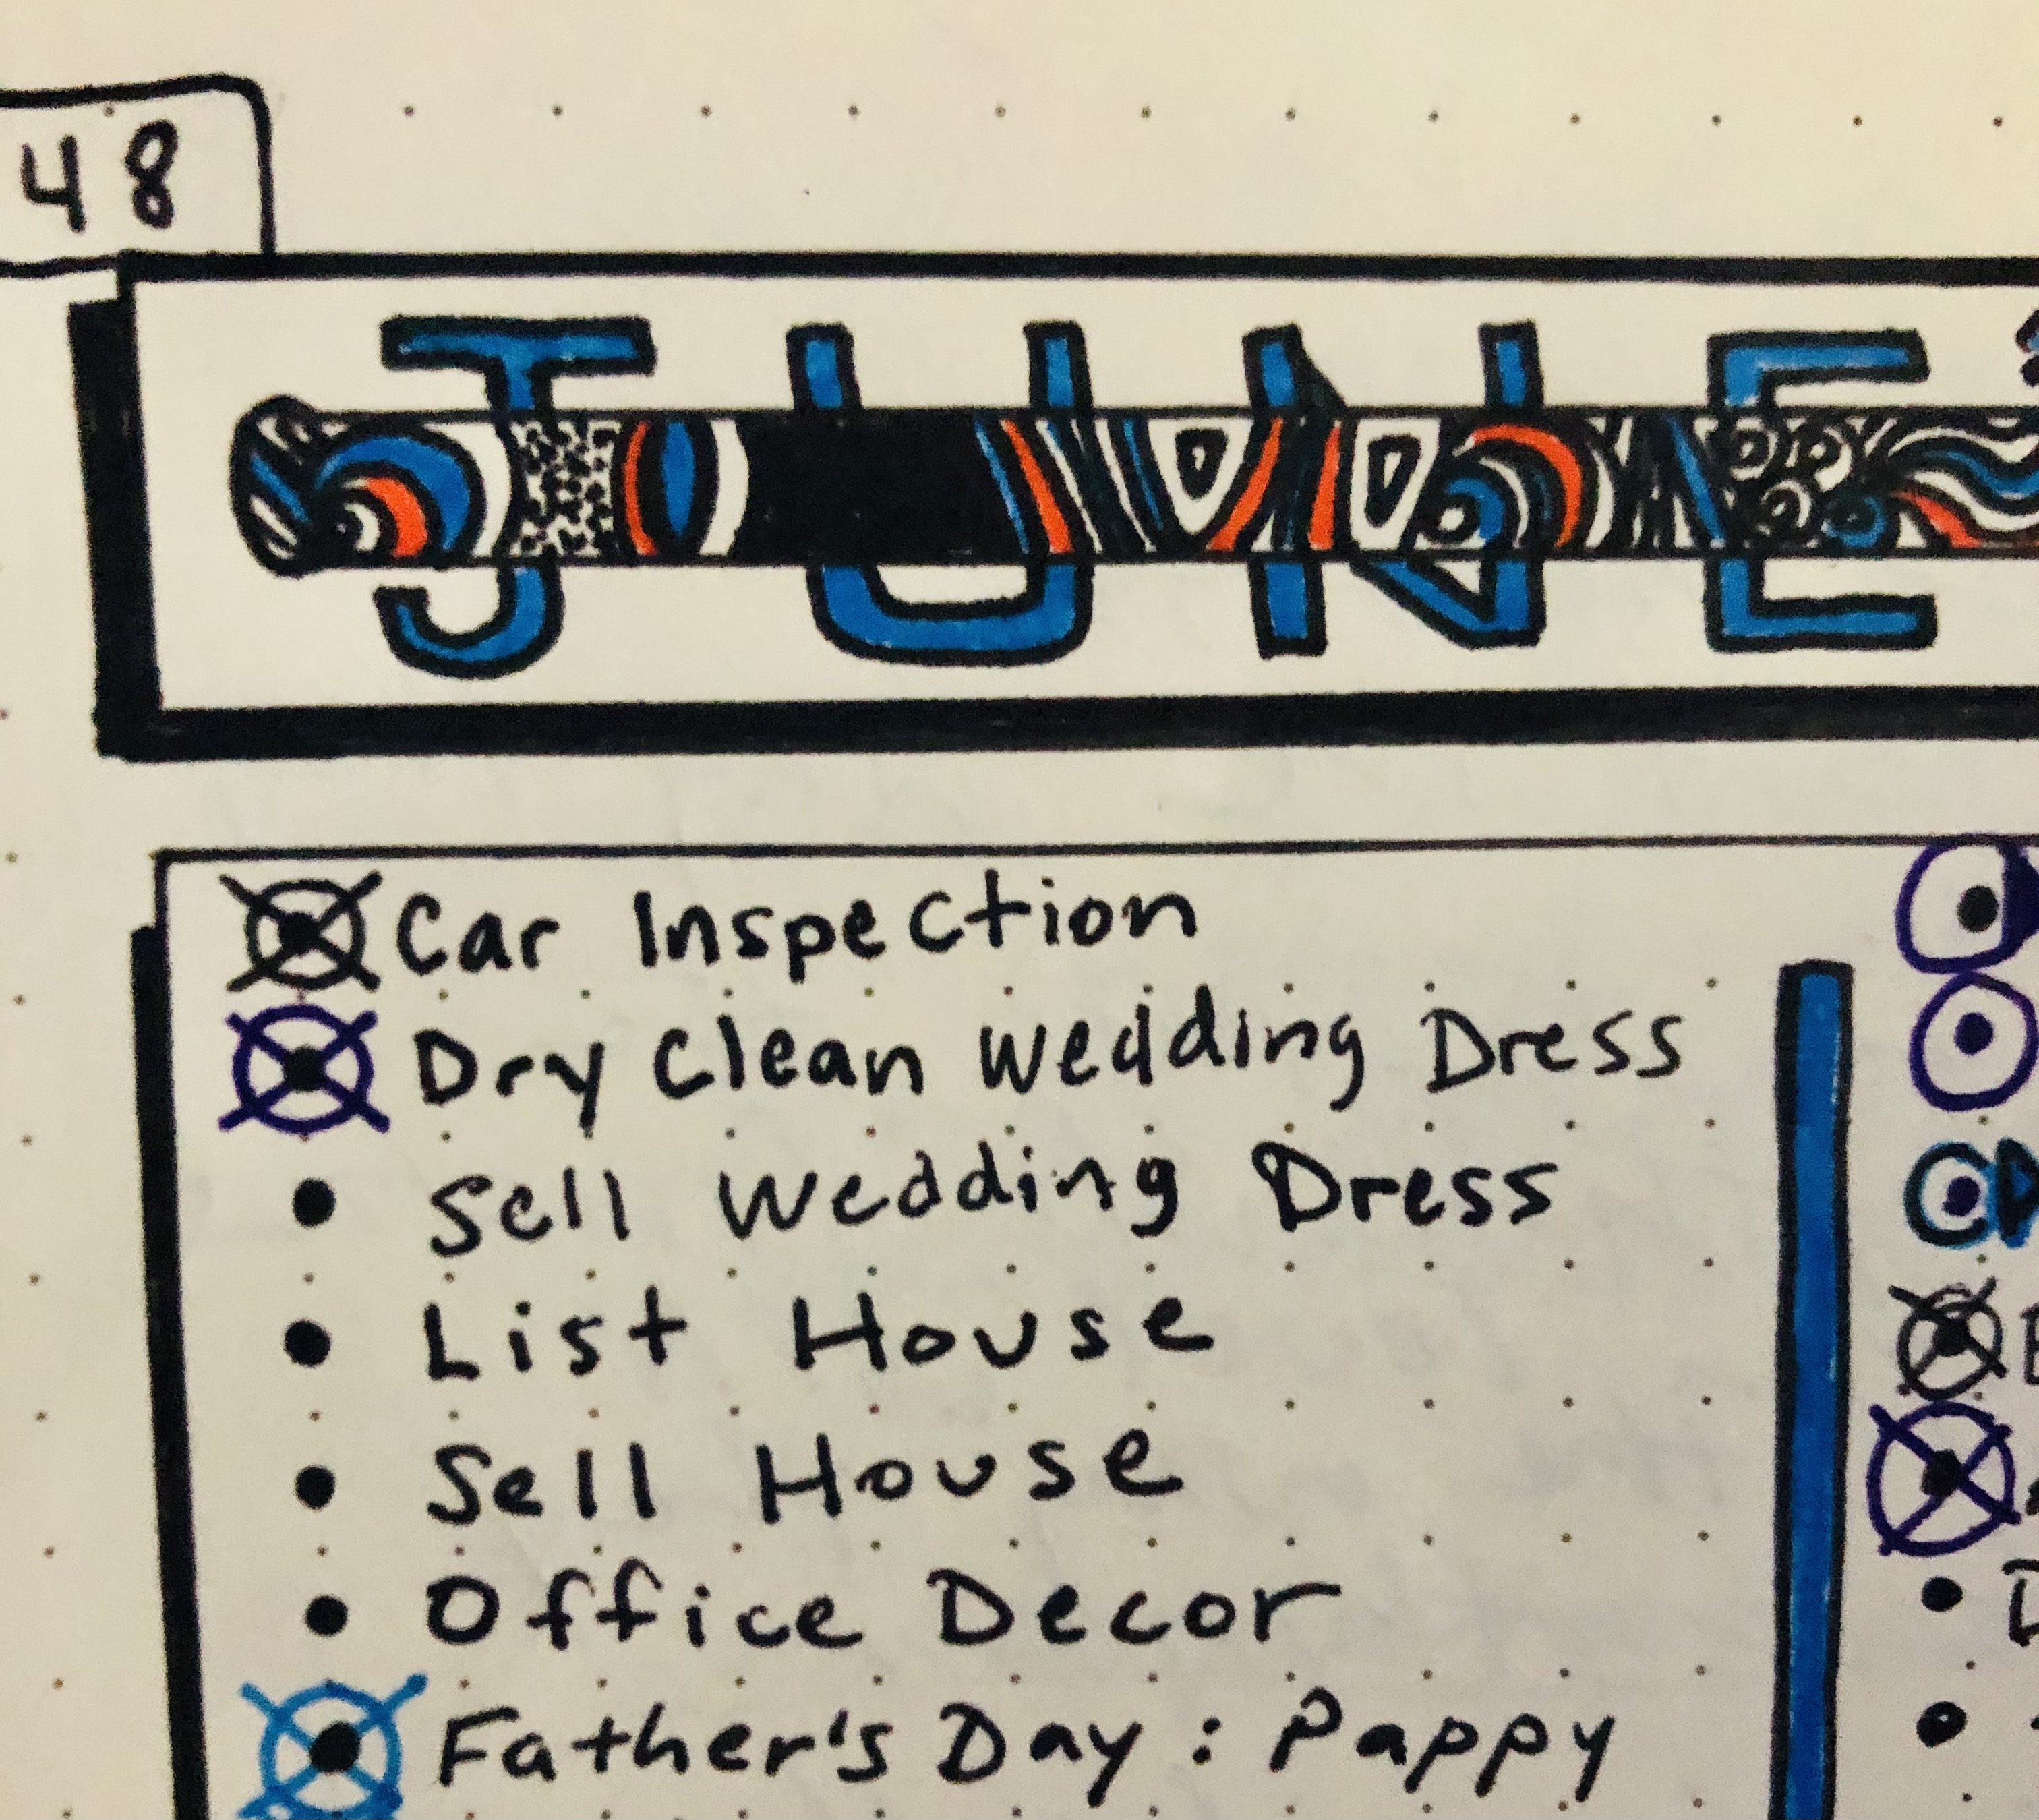 48
JUNE
Car Inspection
Dry Clean Wedding Dress
Sell Wedding Dress
List House
Sell House
Office Decor
Father's Day : Pappy